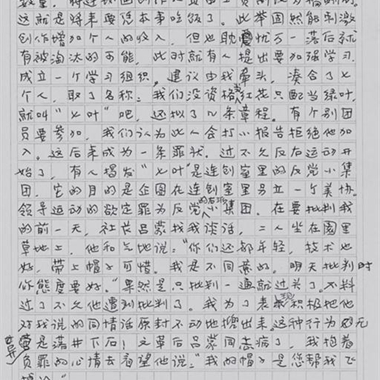 就是将来要凭本事吃饭了。此举固然能刺激
创作增加个人的收入,但也耽忧万一落后就
有被淘汰的可能,此时就有人提出要加强学习
成立一个学习组织。建议由我牵头,凑合了七
个人,取了名称:我们没资格红花只配当绿叶,
就叫“七叶”吧。这拟了几条章程。有个别团
员要参加,我们认为此人会打小报告拒绝他加
入。这后来成为一条罪状。过不久反右运动开
始了,有人揭发“七叶”是连创室里的反党小集
团,它的目的是企图在连创室里另立一个美协
领导运动的欲定罪为反党的右派小集团。在要批判我
的前一天,社长吕蒙找我谈话,二人坐在园里
草地上,他和气地说:“你们这都年轻,技术也
好,带上帽子可惜。我是不同意的。明天批判时
你态度要好。”果然是只批判一通就过关了。不料
过了不久他遭到批判了。我为了表示积极把他
对我说的同情话原封不动地兜出来这种行为
是落井下石!文革后吕蒙同志病了,我抱着
负罪的心情去看望他说:“我的帽子是您帮我飞